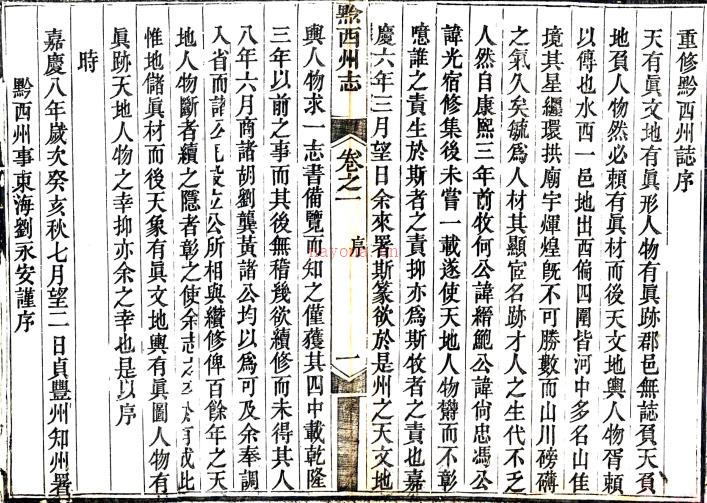 重修黔西州誌序
天有眞文地有眞形人物有眞跡郡邑無誌負天負
地負人物然必頼有眞材而後天文地輿人物胥頼
以傳也水西一邑地出西偏四圍皆河中多名山佳
境其星纏環拱廟宇輝煌旣不可勝數而山川磅礴
之氣久矣毓爲人材其顯宦名跡才人之生代不乏
人然自康熙三年前牧何公諱縉鮑公諱尙忠馮公
諱光宿修集後未嘗一載遂使天地人物欝而不彰
噫誰之責生於斯者之責抑亦爲斯牧者之責也嘉
慶六年三月望日余來署斯篆欲於是州之天文地
黔西州志
卷之一
序
一
輿人物求一志書備覽而知之僅獲其四中載乾隆
三年以前之事而其後無稽幾欲續修而未得其人
八年六月商諸胡劉龔黃諸公均以爲可及余奉調
入省而諸公見設立公所相與纘修俾百餘年之天
地人物斷者續之隱者彰之使余志之成比
惟地儲眞材而後天象有眞文地輿有眞圖人物有
眞跡天地人物之幸抑亦余之幸也是以序
時
嘉慶八年歲次癸亥秋七月望二日貞豐州知州署
黔西州事東海劉永安謹序
nayona.cn